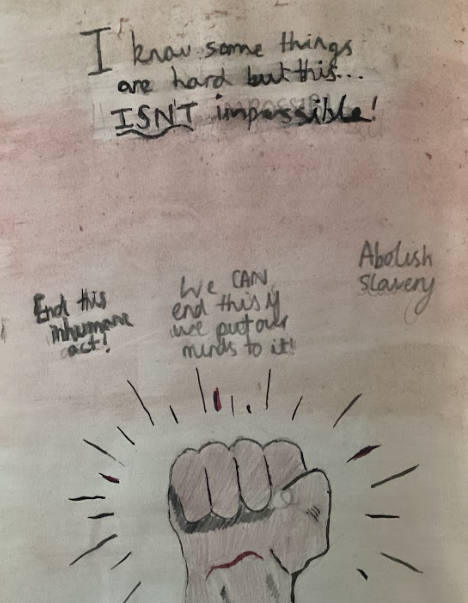 I know some things
are hard but this...
ISN'T impossible!
End this
inhumane
act!
We CAN
end this if
we put our
minds to it!
Abolish
Slavery